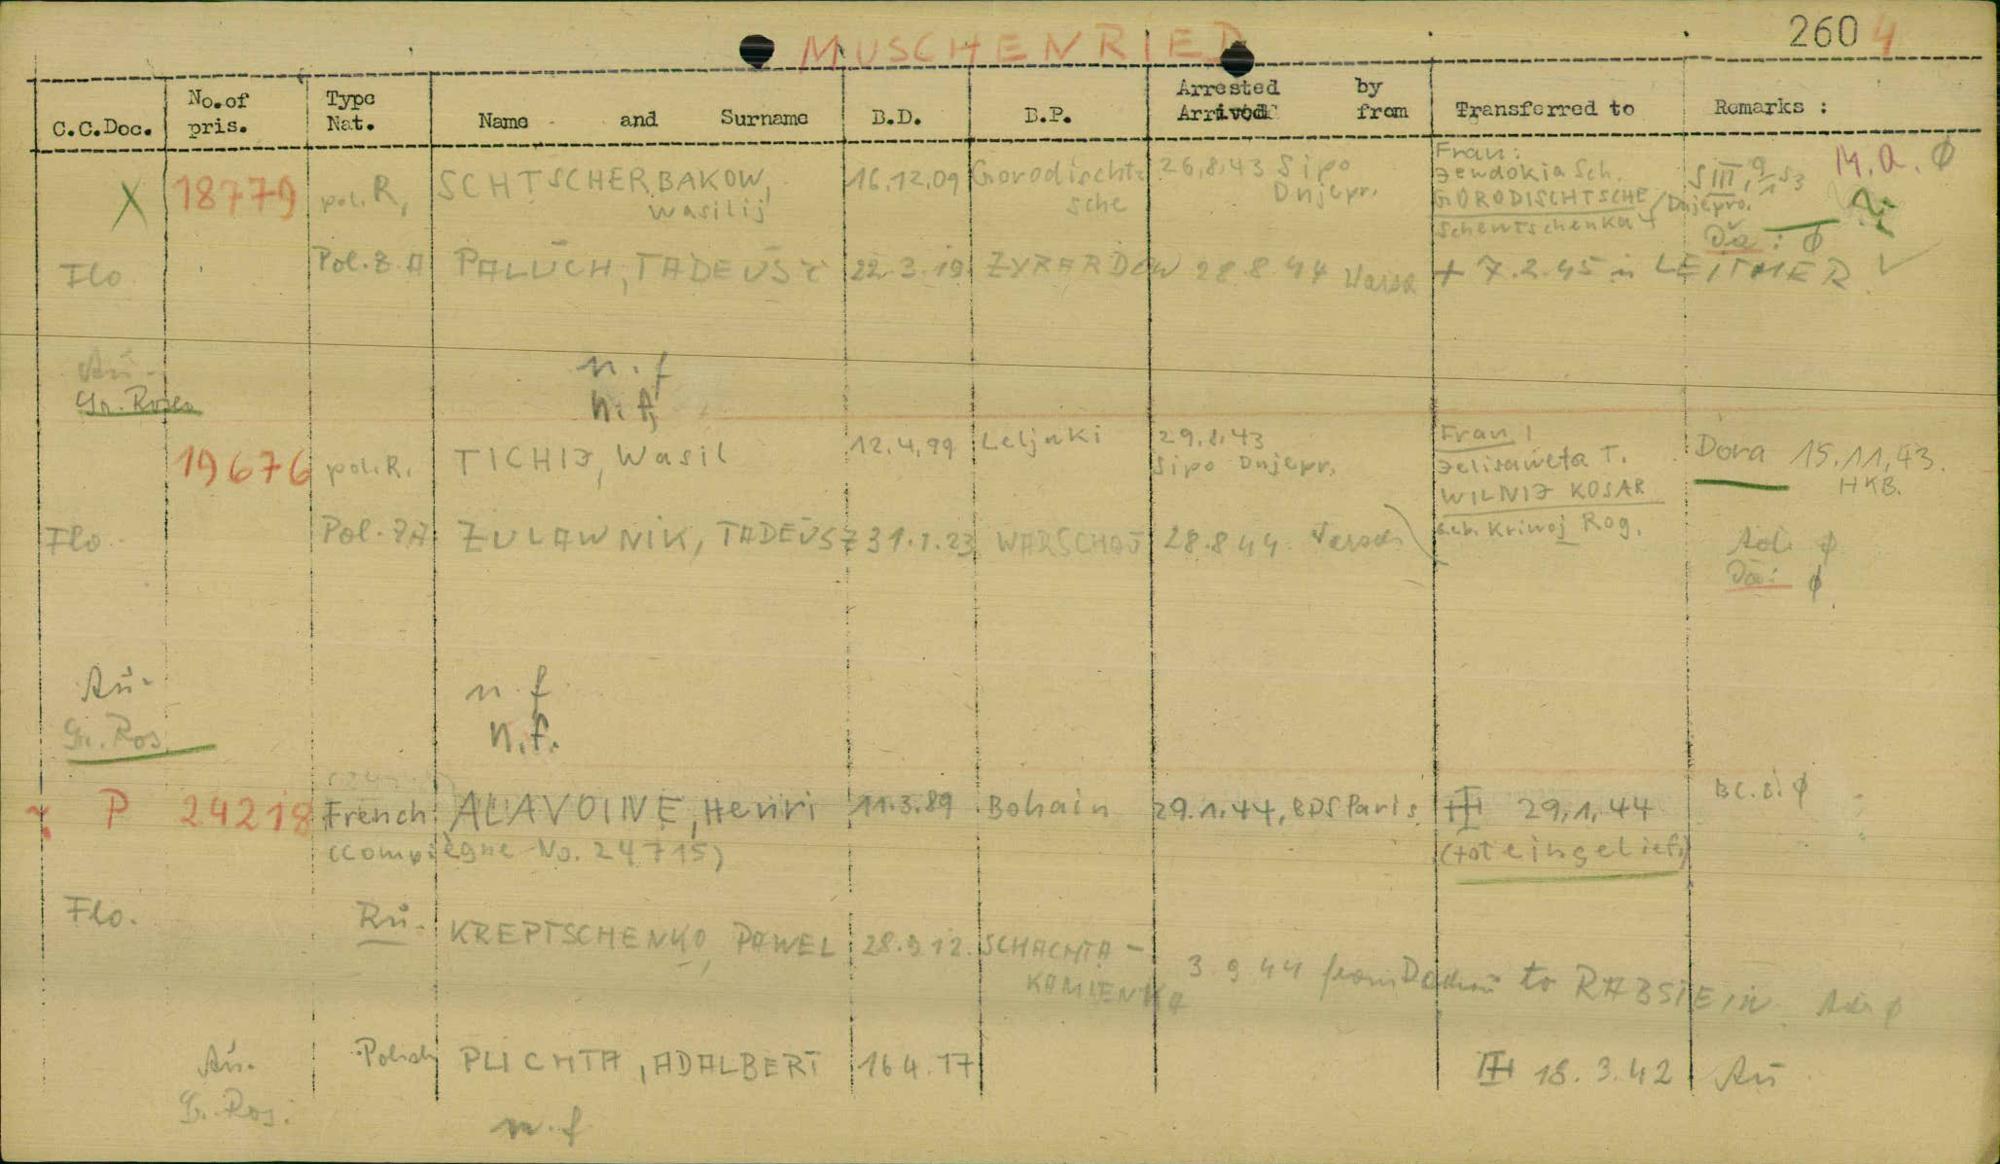 MUSCHENRIED 2604
C.C.Doc. No.of pris. Type Nat. Name and Surname B.D. B.P. Arrested by Arrived from Transferred to Remarks :
X 18779 pol. R, SCHTSCHERBAKOW, Wasilij 16.12.09 Gorodischtsche 26.8.43 Sipo Dnjepr. Frau: Jewdokia Sch. GORODISCHTSCHE / Dnjepro. Schewtschenka 4 M.A. Ø
Da: Ø
Flo Pol. PALUCH, TADEUSZ 22.3.19 ZYRARDOW 28.8.44 + 7.2.45 in LEITMER ✓
Au- n.f
Gr. Rosen n.f.
19676 pol. R. TICHIJ, Wasil 12.4.99 Leljaki 29.8.43 Sipo Dnjepr. Frau Jelisaweta T. WILNIJ KOSAR Geb. Kriwoj Rog. Dora 15.11.43. HKB.
Flo Pol. ZULAWNIK, TADEUSZ 31.1.23 WARSCHAU 28.8.44
Ad. Ø
Da: Ø
Au- n.f
Gr. Ros. n.f.
P 24218 French ALAVOINE, Henri 11.3.89 Bohain 29.1.44, BDS Paris 29.1.44
(Compiègne No. 24715) (tot eingelief.)
Flo. Ru- KREPTSCHENKO, PAWEL 28.9.12. SCHACHTA-KAMIENKA 3.9.44 from Dachau to RABSTEIN
Au- Polish PLICHTA, ADALBERT 16.4.17 18.3.42 Au
Gr. Ros. n.f